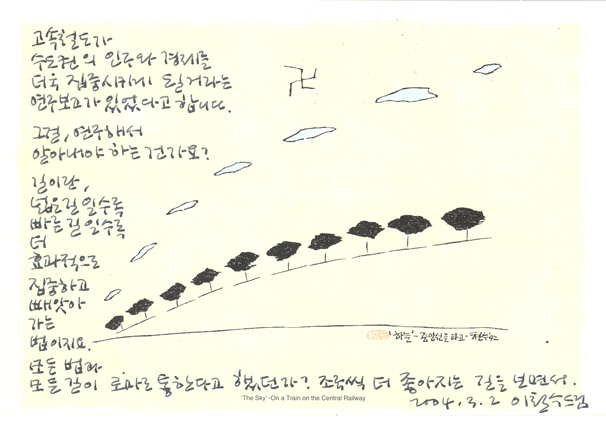 고속철도가
수도권의 인구와 경제를
더욱 집중시키게 될거라는
연구보고가 있었다고 합니다.
그걸, 연구해서
알아내야 하는 건가요?
길이란,
넓은길 일수록
빠른길 일수록
더
효과적으로
집중하고
빼앗아
가는
법이지요.
모든 법과
모든 길이 로마로 통한다고 했던가? 조금씩 더 좋아지는 길을 보면서.
2004. 3. 2 이철수드림
'하늘' - 중앙선을 타고 - 철수 92
'The Sky' -On a Train on the Central Railway